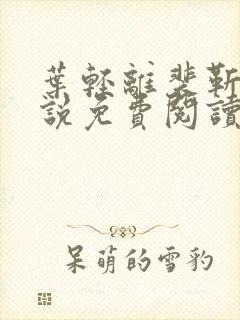 葉輕離裴靳
說免費閱讀
呆萌的雪豹